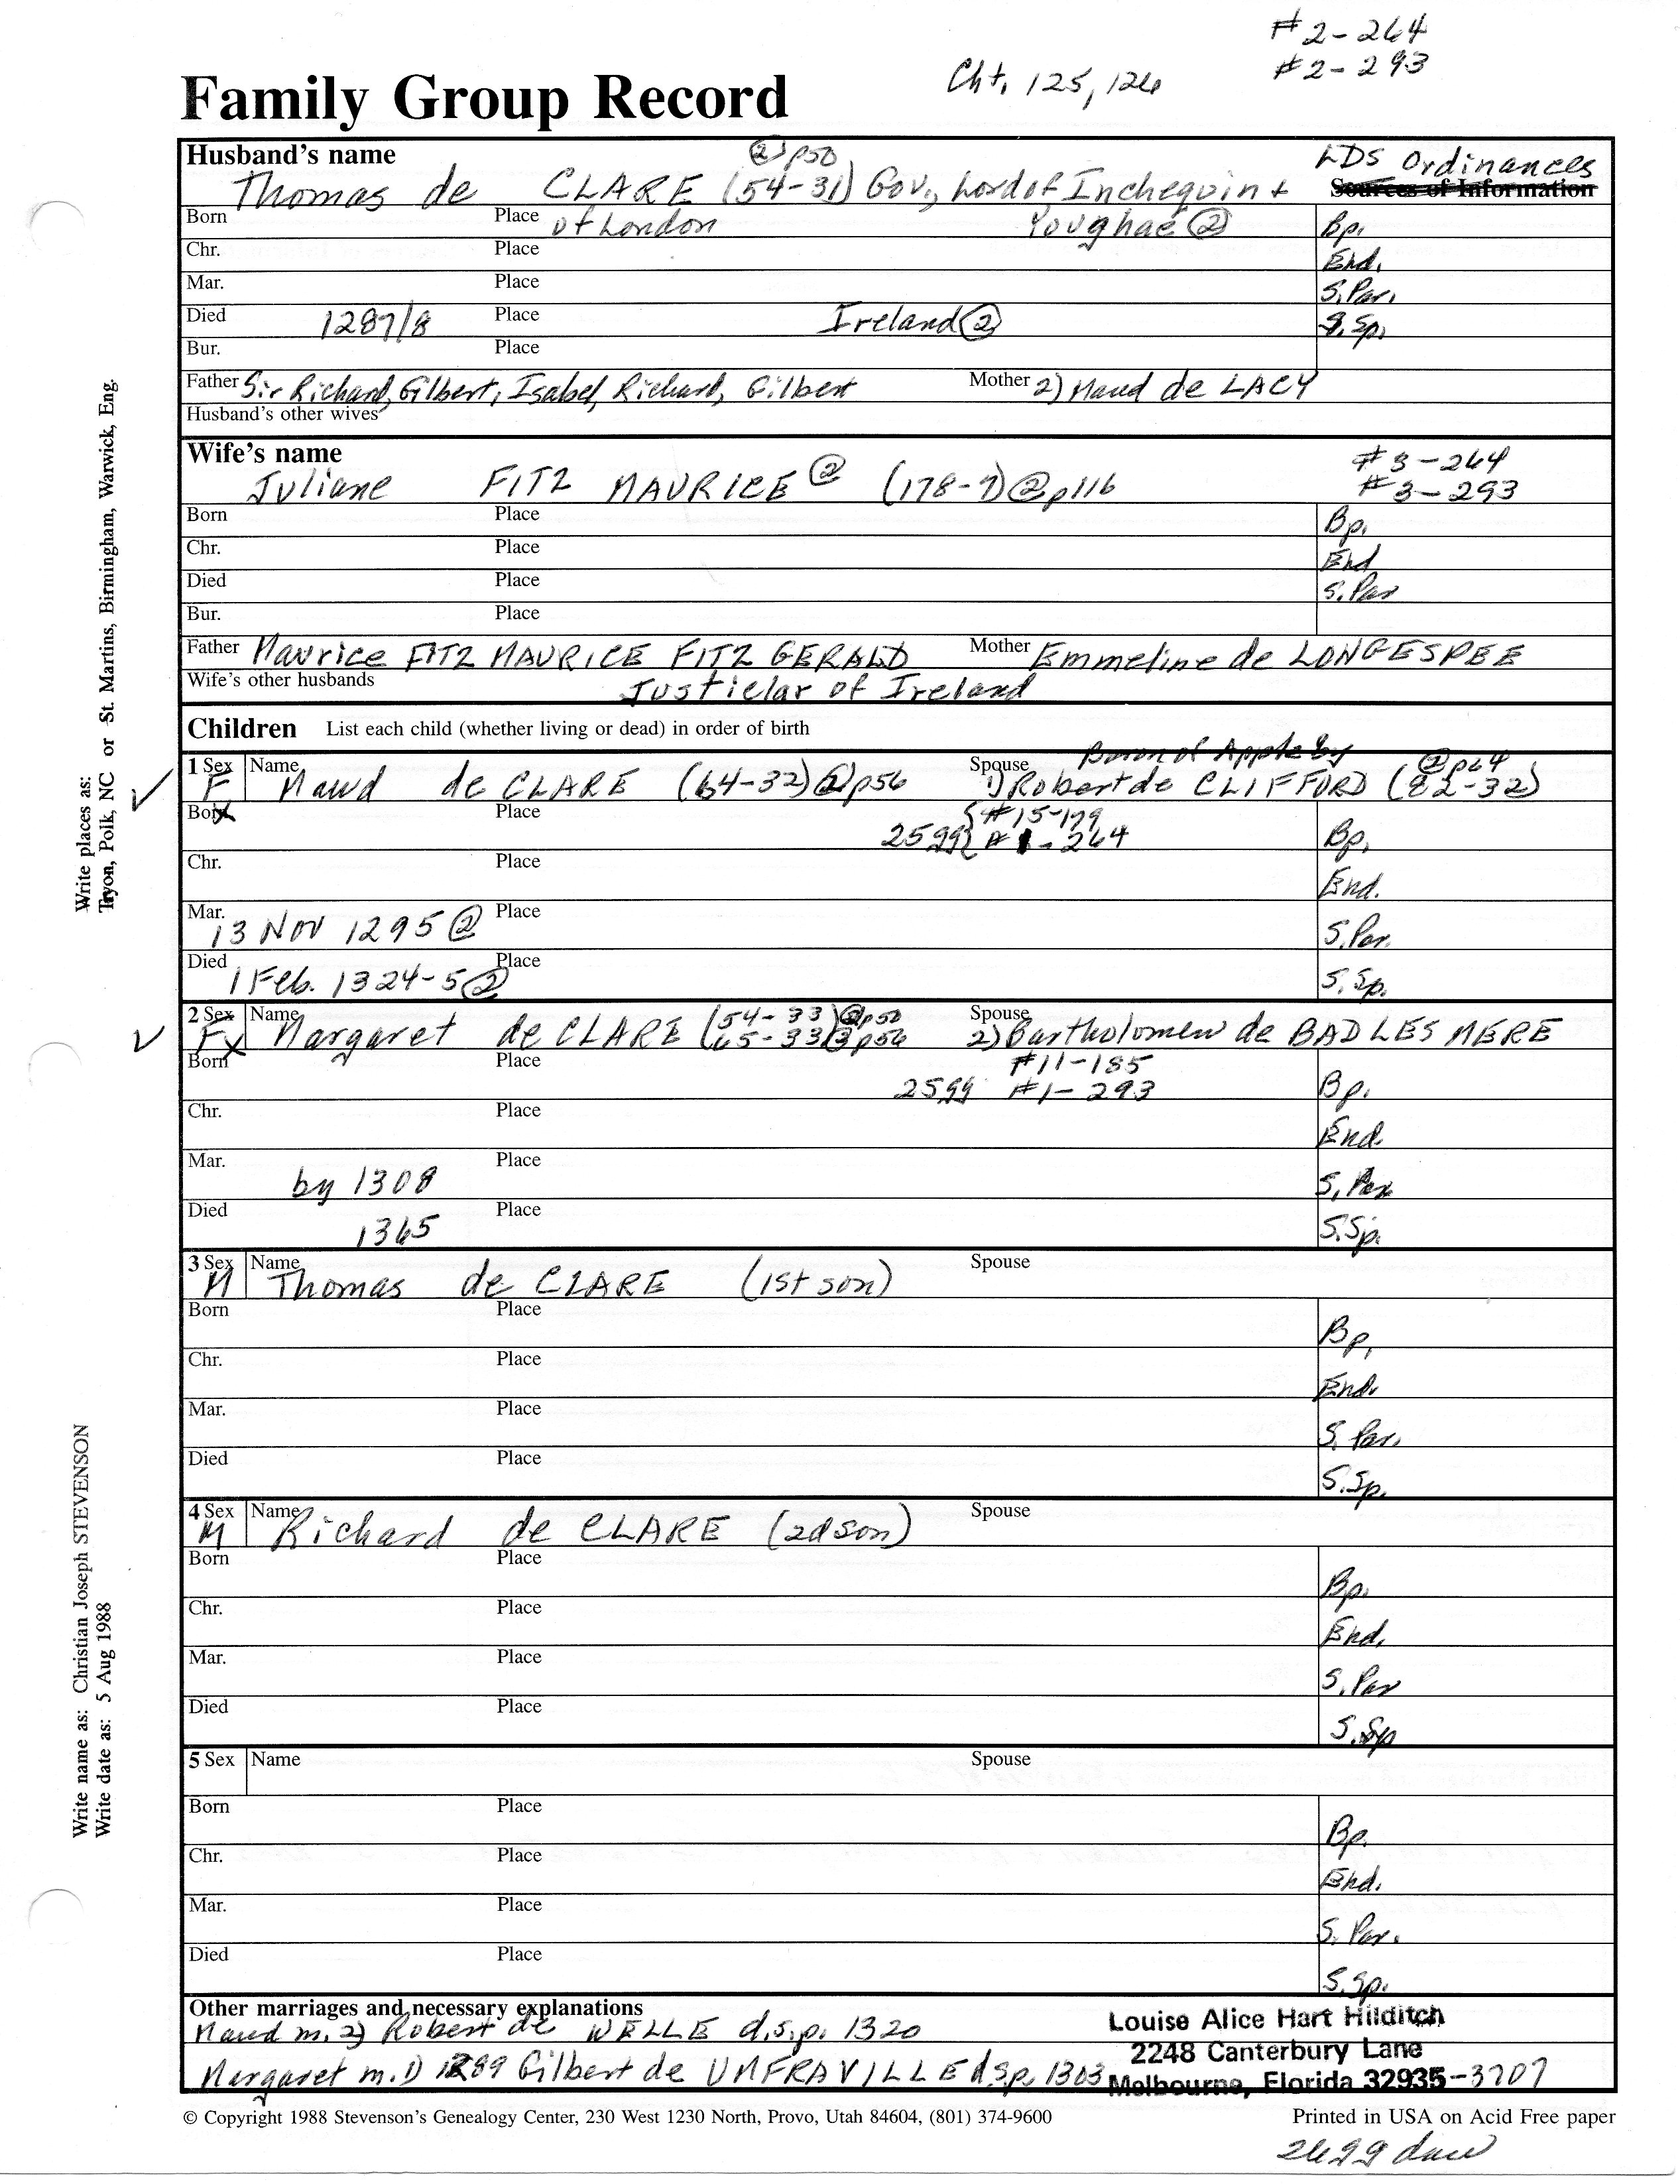 #2-264
Cht. 125, 126 #2-293
Family Group Record
Husband's name ② p50 LDS Ordinances
Thomas de CLARE (54-31) Gov., Lord of Inchequin + Sources of Information
Born Place of London Youghae ② Bp.
Chr. Place End.
Mar. Place S. Par.
Died 1287/8 Place Ireland ② S. Sp.
Bur. Place
Father Sir Richard, Gilbert, Isabel, Richard, Gilbert Mother 2) Maud de LACY
Husband's other wives
Wife's name #3-264
Juliane FITZ MAURICE ② (178-7) ② p116 #3-293
Born Place Bp.
Chr. Place End
Died Place S. Par
Bur. Place
Father Maurice FITZ MAURICE FITZ GERALD Mother Emmeline de LONGESPEE
Wife's other husbands Justiciar of Ireland
Children List each child (whether living or dead) in order of birth
Baron of Appleby
1 Sex Name Spouse ② p64
F Maud de CLARE (64-32) ② p56 1) Robert de CLIFFORD (82-32)
Born Place #15-179
25gg #1-264 Bp.
Chr. Place End.
Mar. 13 Nov 1295 ② Place S. Par.
Died 1 Feb. 1324-5 ② Place S. Sp.
2 Sex Name (54-33) ② p50 Spouse
F Margaret de CLARE (65-33) ③ p56 2) Bartholomew de BADLESMERE
Born Place #11-185
25gg #1-293 Bp.
Chr. Place End.
Mar. by 1308 Place S. Par
Died 1365 Place S. Sp.
3 Sex Name Spouse
M Thomas de CLARE (1st son)
Born Place Bp.
Chr. Place End.
Mar. Place S. Par.
Died Place S. Sp.
4 Sex Name Spouse
M Richard de CLARE (2d son)
Born Place Bp.
Chr. Place End.
Mar. Place S. Par
Died Place S. Sp
5 Sex Name Spouse
Born Place Bp.
Chr. Place End.
Mar. Place S. Par.
Died Place S. Sp.
Other marriages and necessary explanations
Maud m. 2) Robert de WELLE d.s.p. 1320
Margaret m. 1) 1289 Gilbert de UMFRAVILLE d.s.p. 1303
Louise Alice Hart Hilditch
2248 Canterbury Lane
Melbourne, Florida 32935-3707
© Copyright 1988 Stevenson's Genealogy Center, 230 West 1230 North, Provo, Utah 84604, (801) 374-9600 Printed in USA on Acid Free paper
Write places as:
Tryon, Polk, NC or St. Martins, Birmingham, Warwick, Eng.
Write name as: Christian Joseph STEVENSON
Write date as: 5 Aug 1988